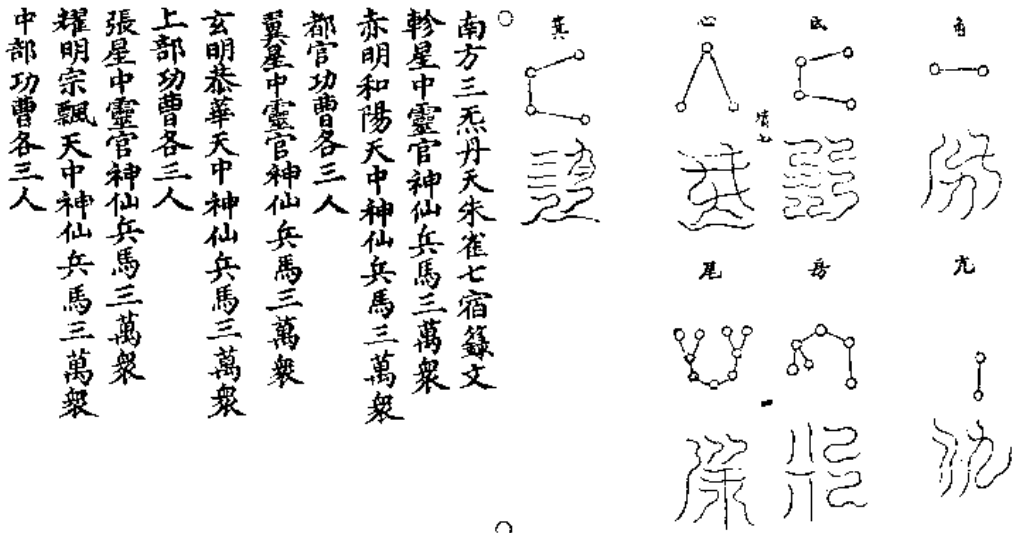 角
亢
氐
房
心
尾
箕
南方三炁丹天朱雀七宿籙文
軫星中靈官神仙兵馬三萬眾
赤明和陽天中神仙兵馬三萬眾
都官功曹各三人
翼星中靈官神仙兵馬三萬眾
玄明恭華天中神仙兵馬三萬眾
上部功曹各三人
張星中靈官神仙兵馬三萬眾
耀明宗飄天中神仙兵馬三萬眾
中部功曹各三人